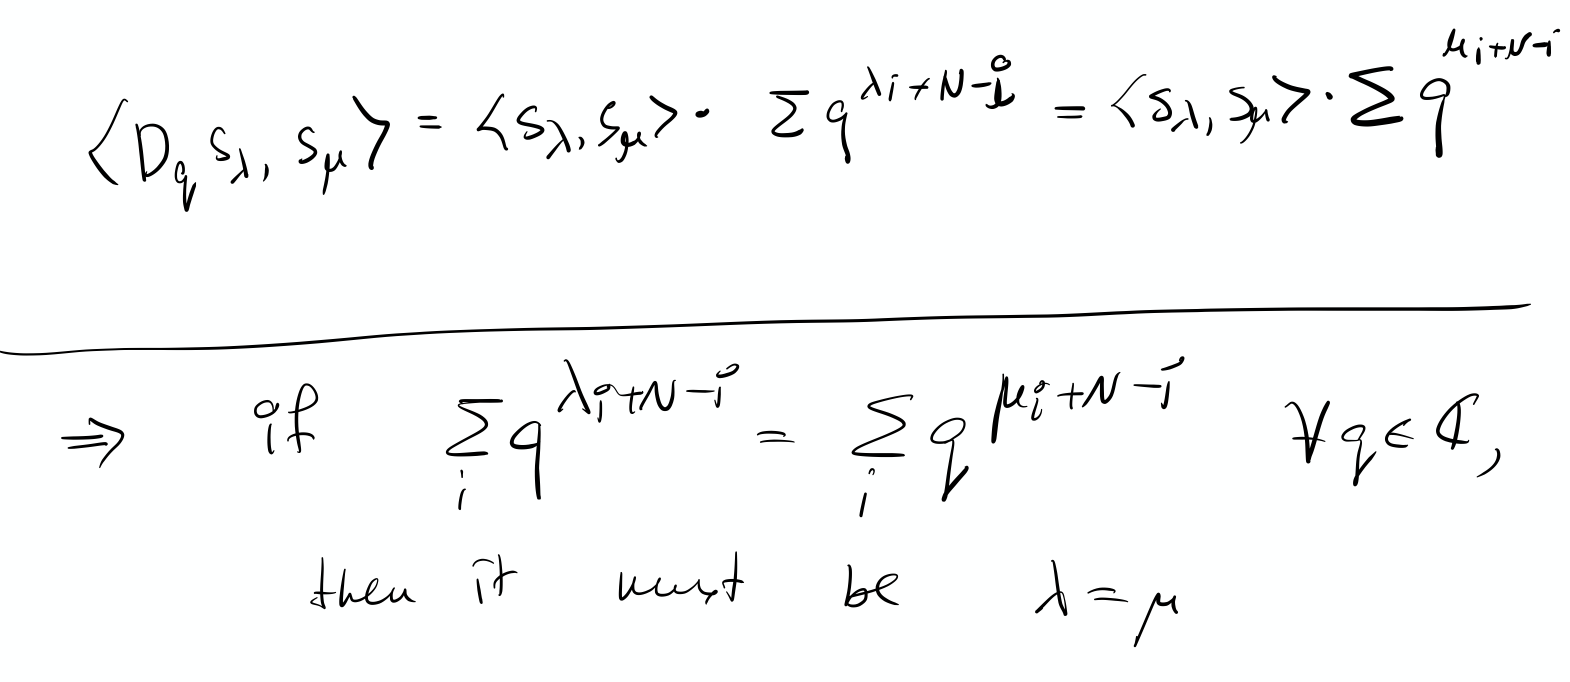 ⟨D_q s_λ, s_μ⟩ = ⟨s_λ, s_μ⟩ · Σ q^{λ_i + N - i} = ⟨s_λ, s_μ⟩ · Σ q^{μ_i + N - i}
⇒ if Σ_i q^{λ_i + N - i} = Σ_i q^{μ_i + N - i} ∀ q ∈ ℂ,
then it must be λ = μ